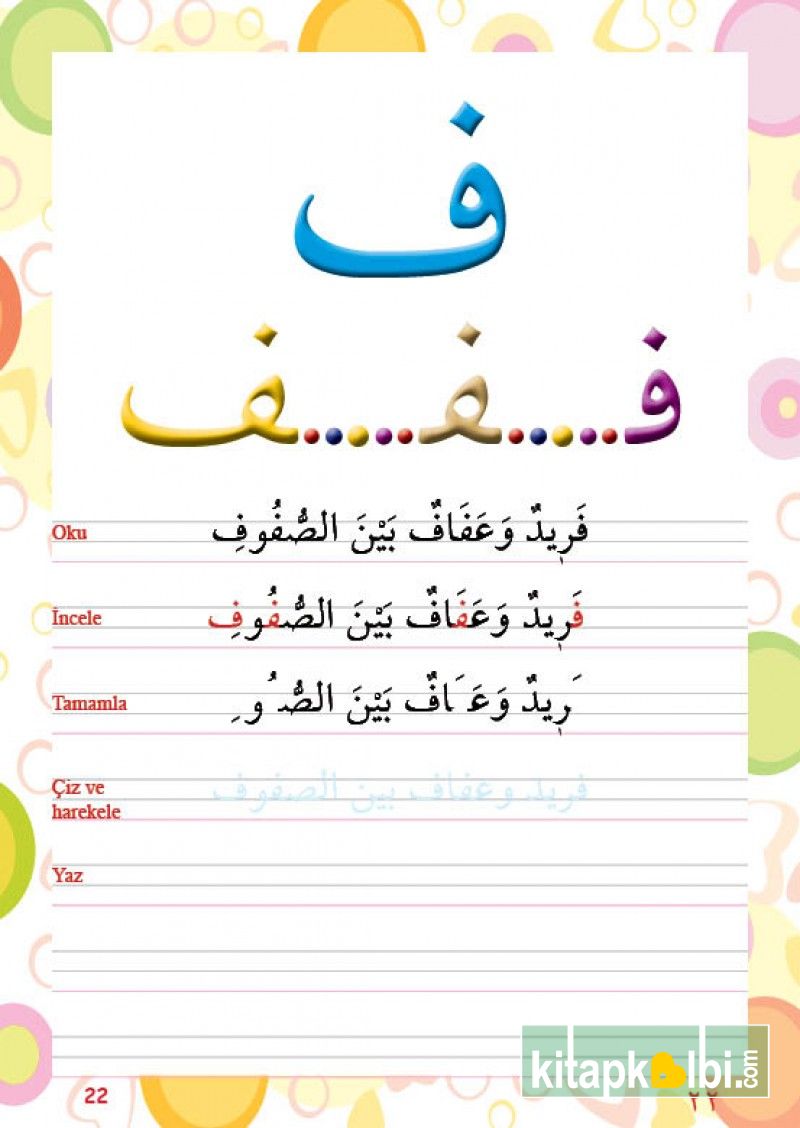 ف
فـ.....ـفـ.....ـف
Oku فَرِيدٌ وَعَفَافٌ بَيْنَ الصُّفُوفِ
İncele فَرِيدٌ وَعَفَافٌ بَيْنَ الصُّفُوفِ
Tamamla َرِيدٌ وَعَ َافٌ بَيْنَ الصُّ ُو ِ
Çiz ve harekele فريد وعفاف بين الصفوف
Yaz
22 ٢٢
kitapkalbi.com